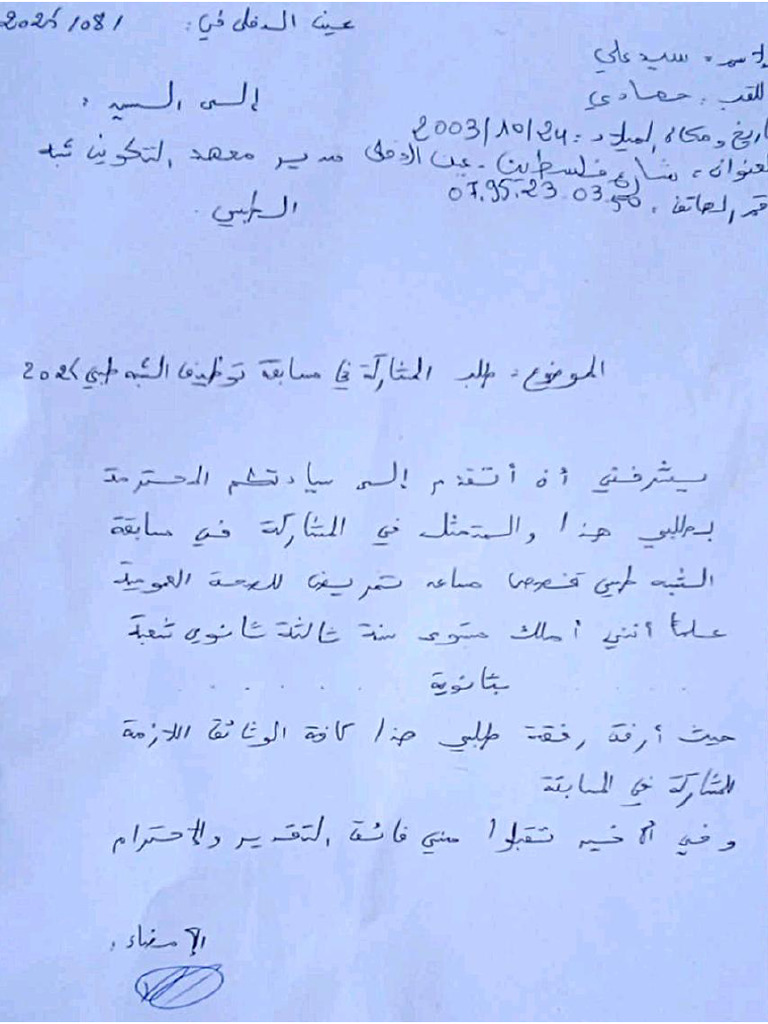 عين الدفلى في: / 08 / 2025
الاسم: سيد علي
اللقب: حمادي
إلى السيد:
تاريخ ومكان الميلاد: 2003/10/24
مدير معهد التكوين شبه
العنوان: شارع فلسطين - عين الدفلى
الطبي.
رقم الهاتف: 07.95.23.03.50
الموضوع: طلب المشاركة في مسابقة توظيف الشبه طبي 2025
يشرفني أن أتقدم إلى سيادتكم المحترمة
بطلبي هذا والمتمثل في المشاركة في مسابقة
الشبه طبي تخصص مساعد تمريض للصحة العمومية
علما أنني أملك مستوى سنة ثالثة ثانوي شعبة
. . . . . . بثانوية . .
حيث أرفق رفقة طلبي هذا كافة الوثائق اللازمة
للمشاركة في المسابقة
وفي الأخير تقبلوا مني فائق التقدير والإحترام
الإمضاء: